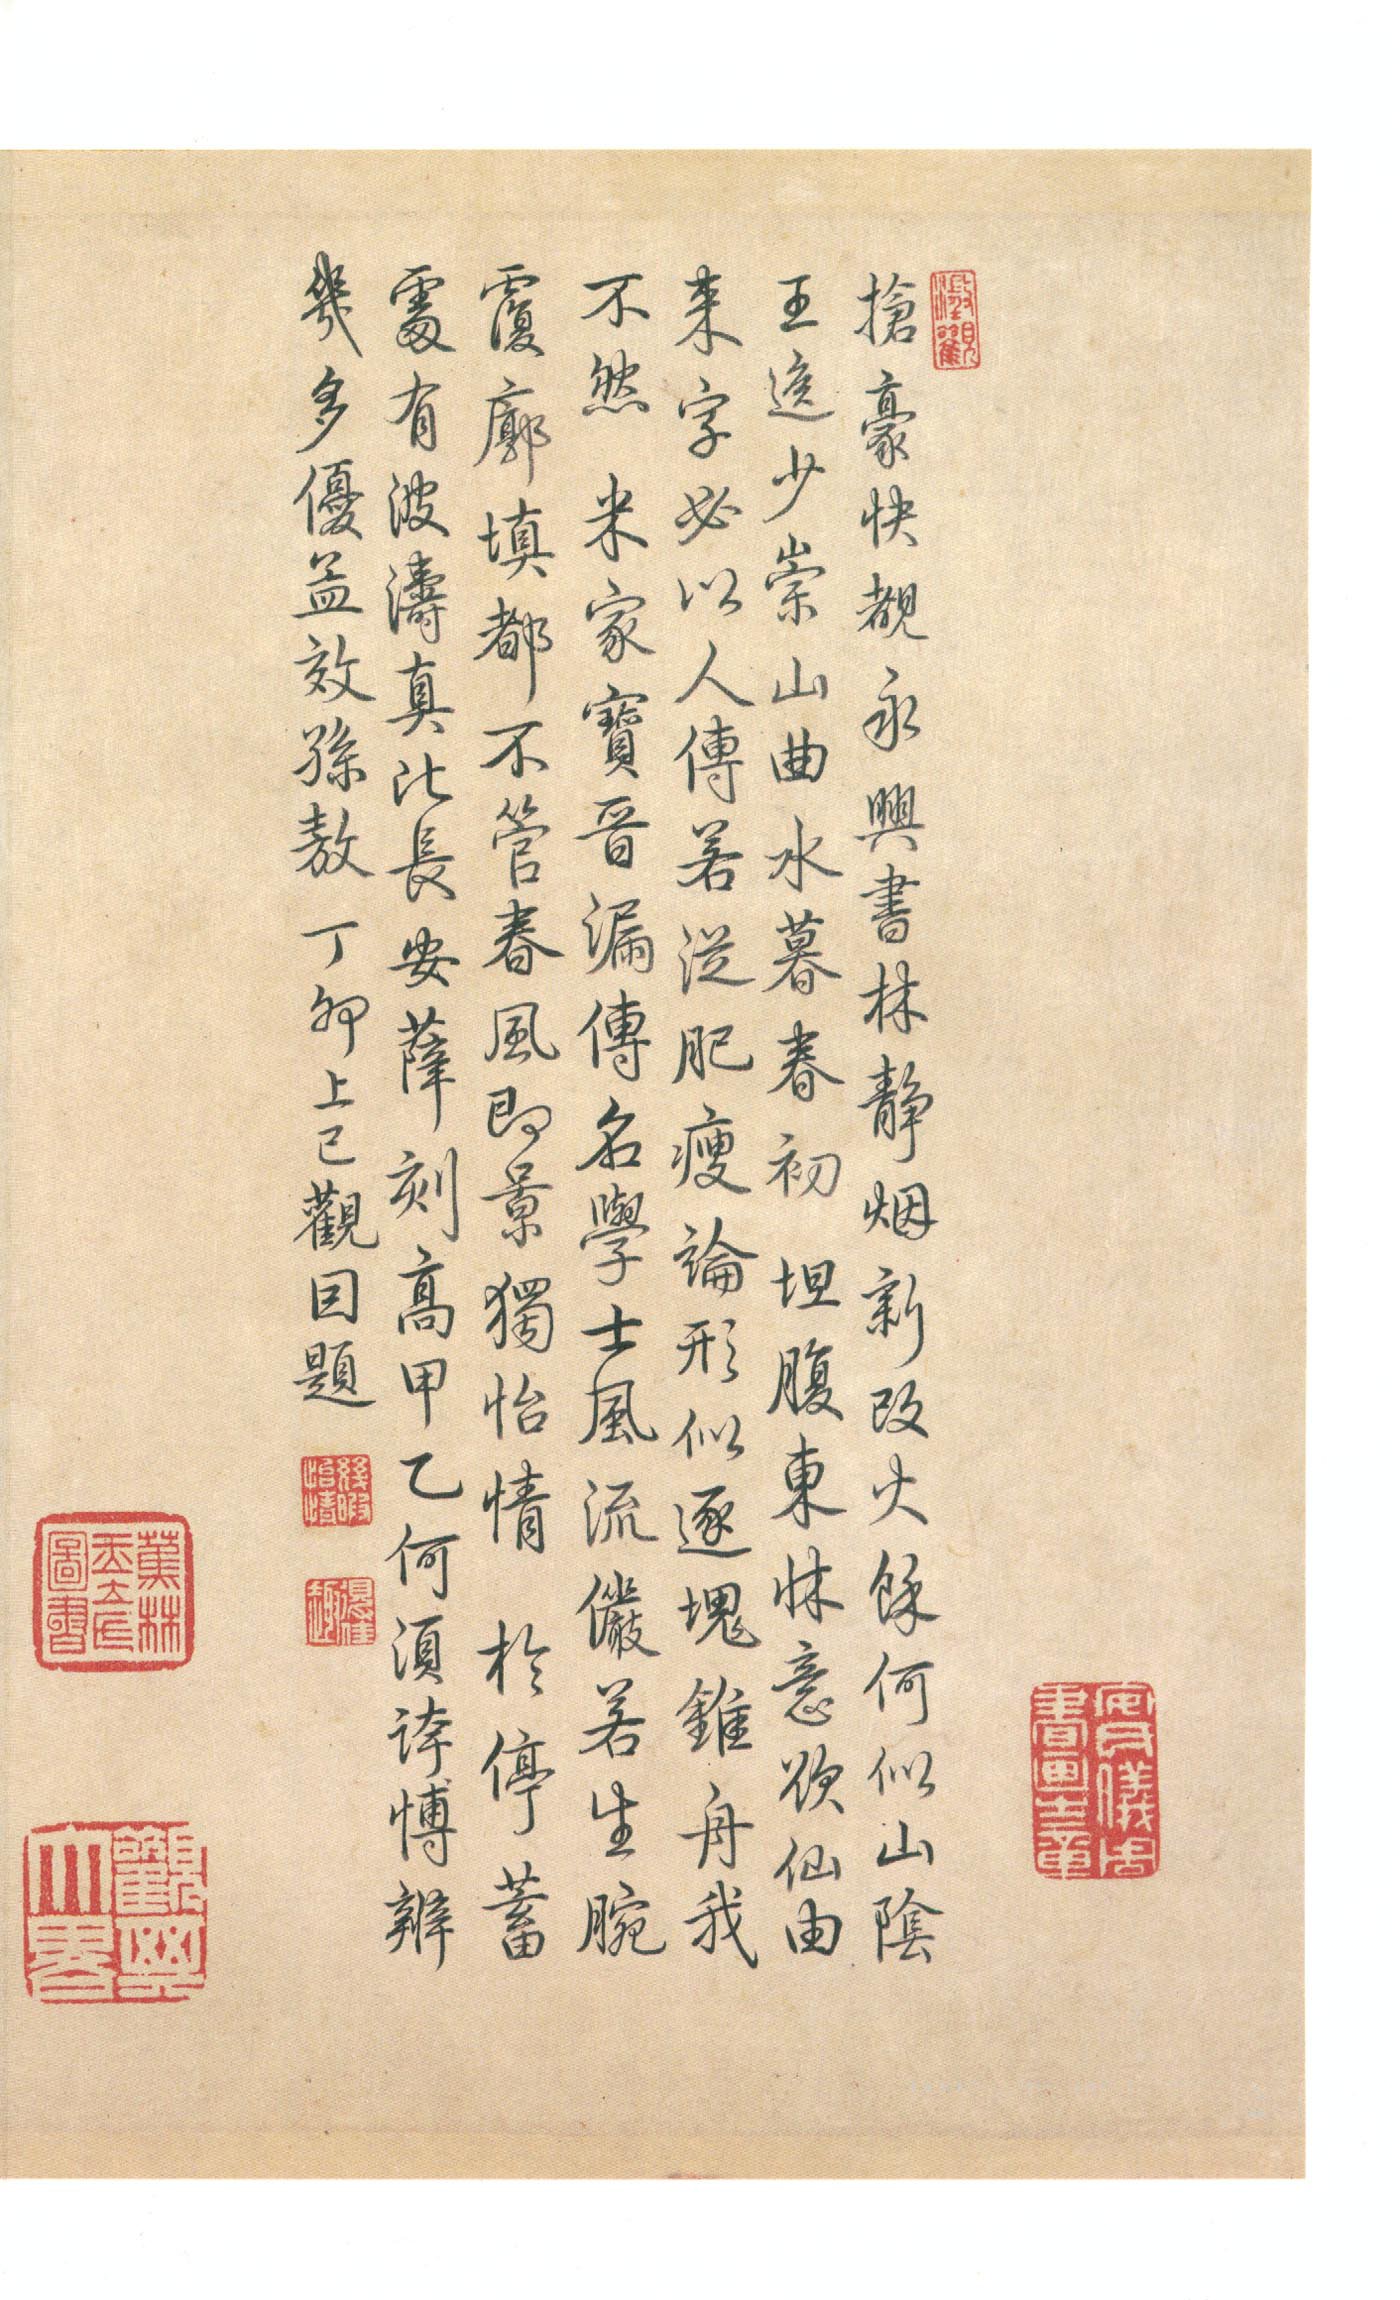 搶豪快覩永興書林靜烟新改火餘何似山陰
王逸少崇山曲水暮春初 坦腹東牀意欲仙由
来字必以人傳若從肥瘦論形似逐塊錐舟我
不然 米家寶晉漏傳名學士風流儼若生腕
覆廓填都不管春風即景獨怡情 於停蓄
處有波濤真比長安薛刻高甲乙何須誇博辨
幾多優孟效孫敖 丁卯上巳觀因題
澄觀
幾暇怡情
得佳趣
蕉林
圖書
觀其大略
安儀周家珍藏